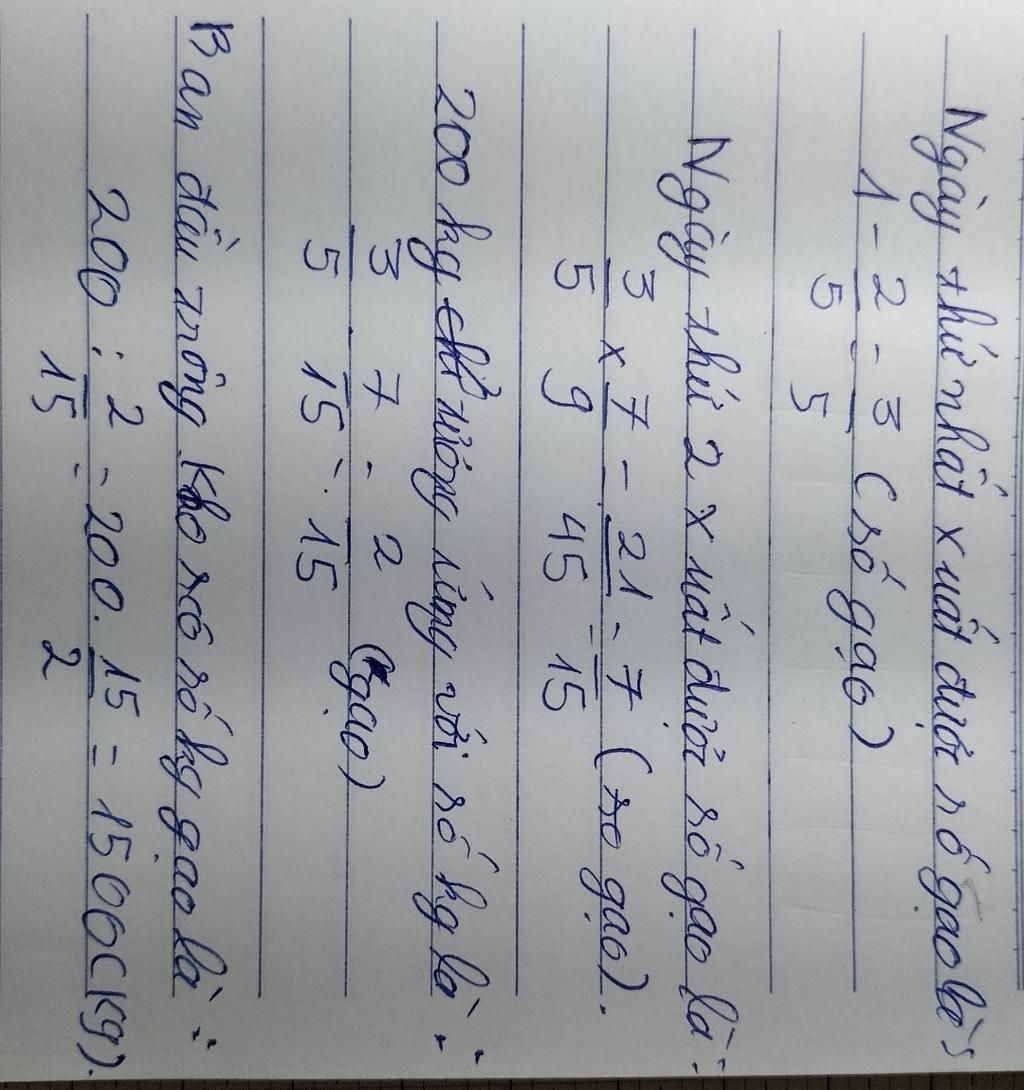 Ngày thứ nhất xuất được số gạo là:
1 - 2/5 = 3/5 (số gạo)
Ngày thứ 2 xuất được số gạo là:
3/5 x 7/9 = 21/45 = 7/15 (so gạo).
200 kg tương ứng với số kg là:
3/5 - 7/15 = 2/15 (gạo)
Ban đầu trong kho số số kg gạo là:
200 : 2/15 = 200 . 15/2 = 1500 (kg).